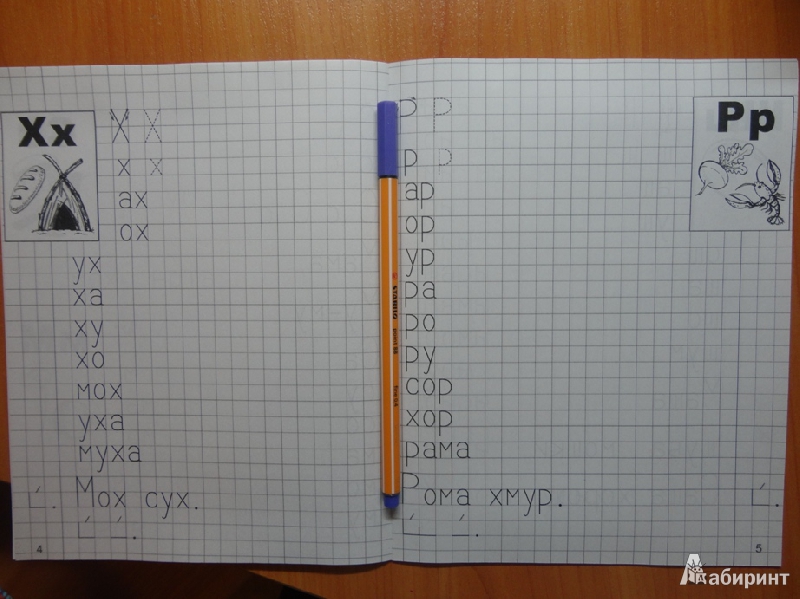 Хх
Х Х
х х
ах
ох
ух
ха
ху
хо
мох
уха
муха
Мох сух.
4
Рр
Р Р
р р
ар
ор
ур
ра
ро
ру
сор
хор
рама
Рома хмур.
5
STABILO
Лабиринт